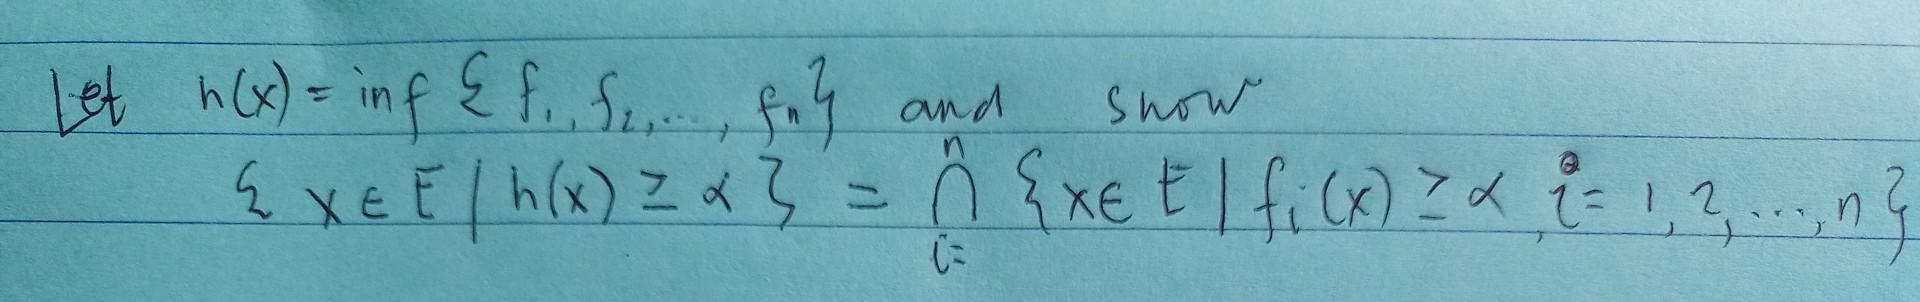 Let h(x) = inf { f₁, f₂, ..., fₙ } and show
{ x ∈ E | h(x) ≥ α } = ⋂ⁿᵢ₌ { x ∈ E | fᵢ(x) ≥ α , i = 1, 2, ..., n }